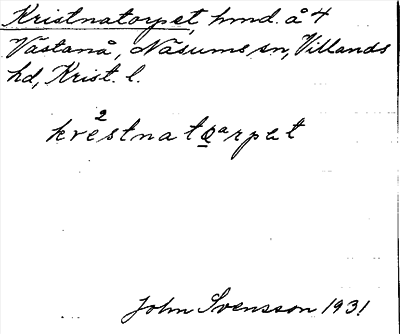 Kristnatorpet, hmd. å 4
Västanå, Näsums sn, Villands
hd, Krist. l.
2
krestnatǫarpet
John Svensson 1931